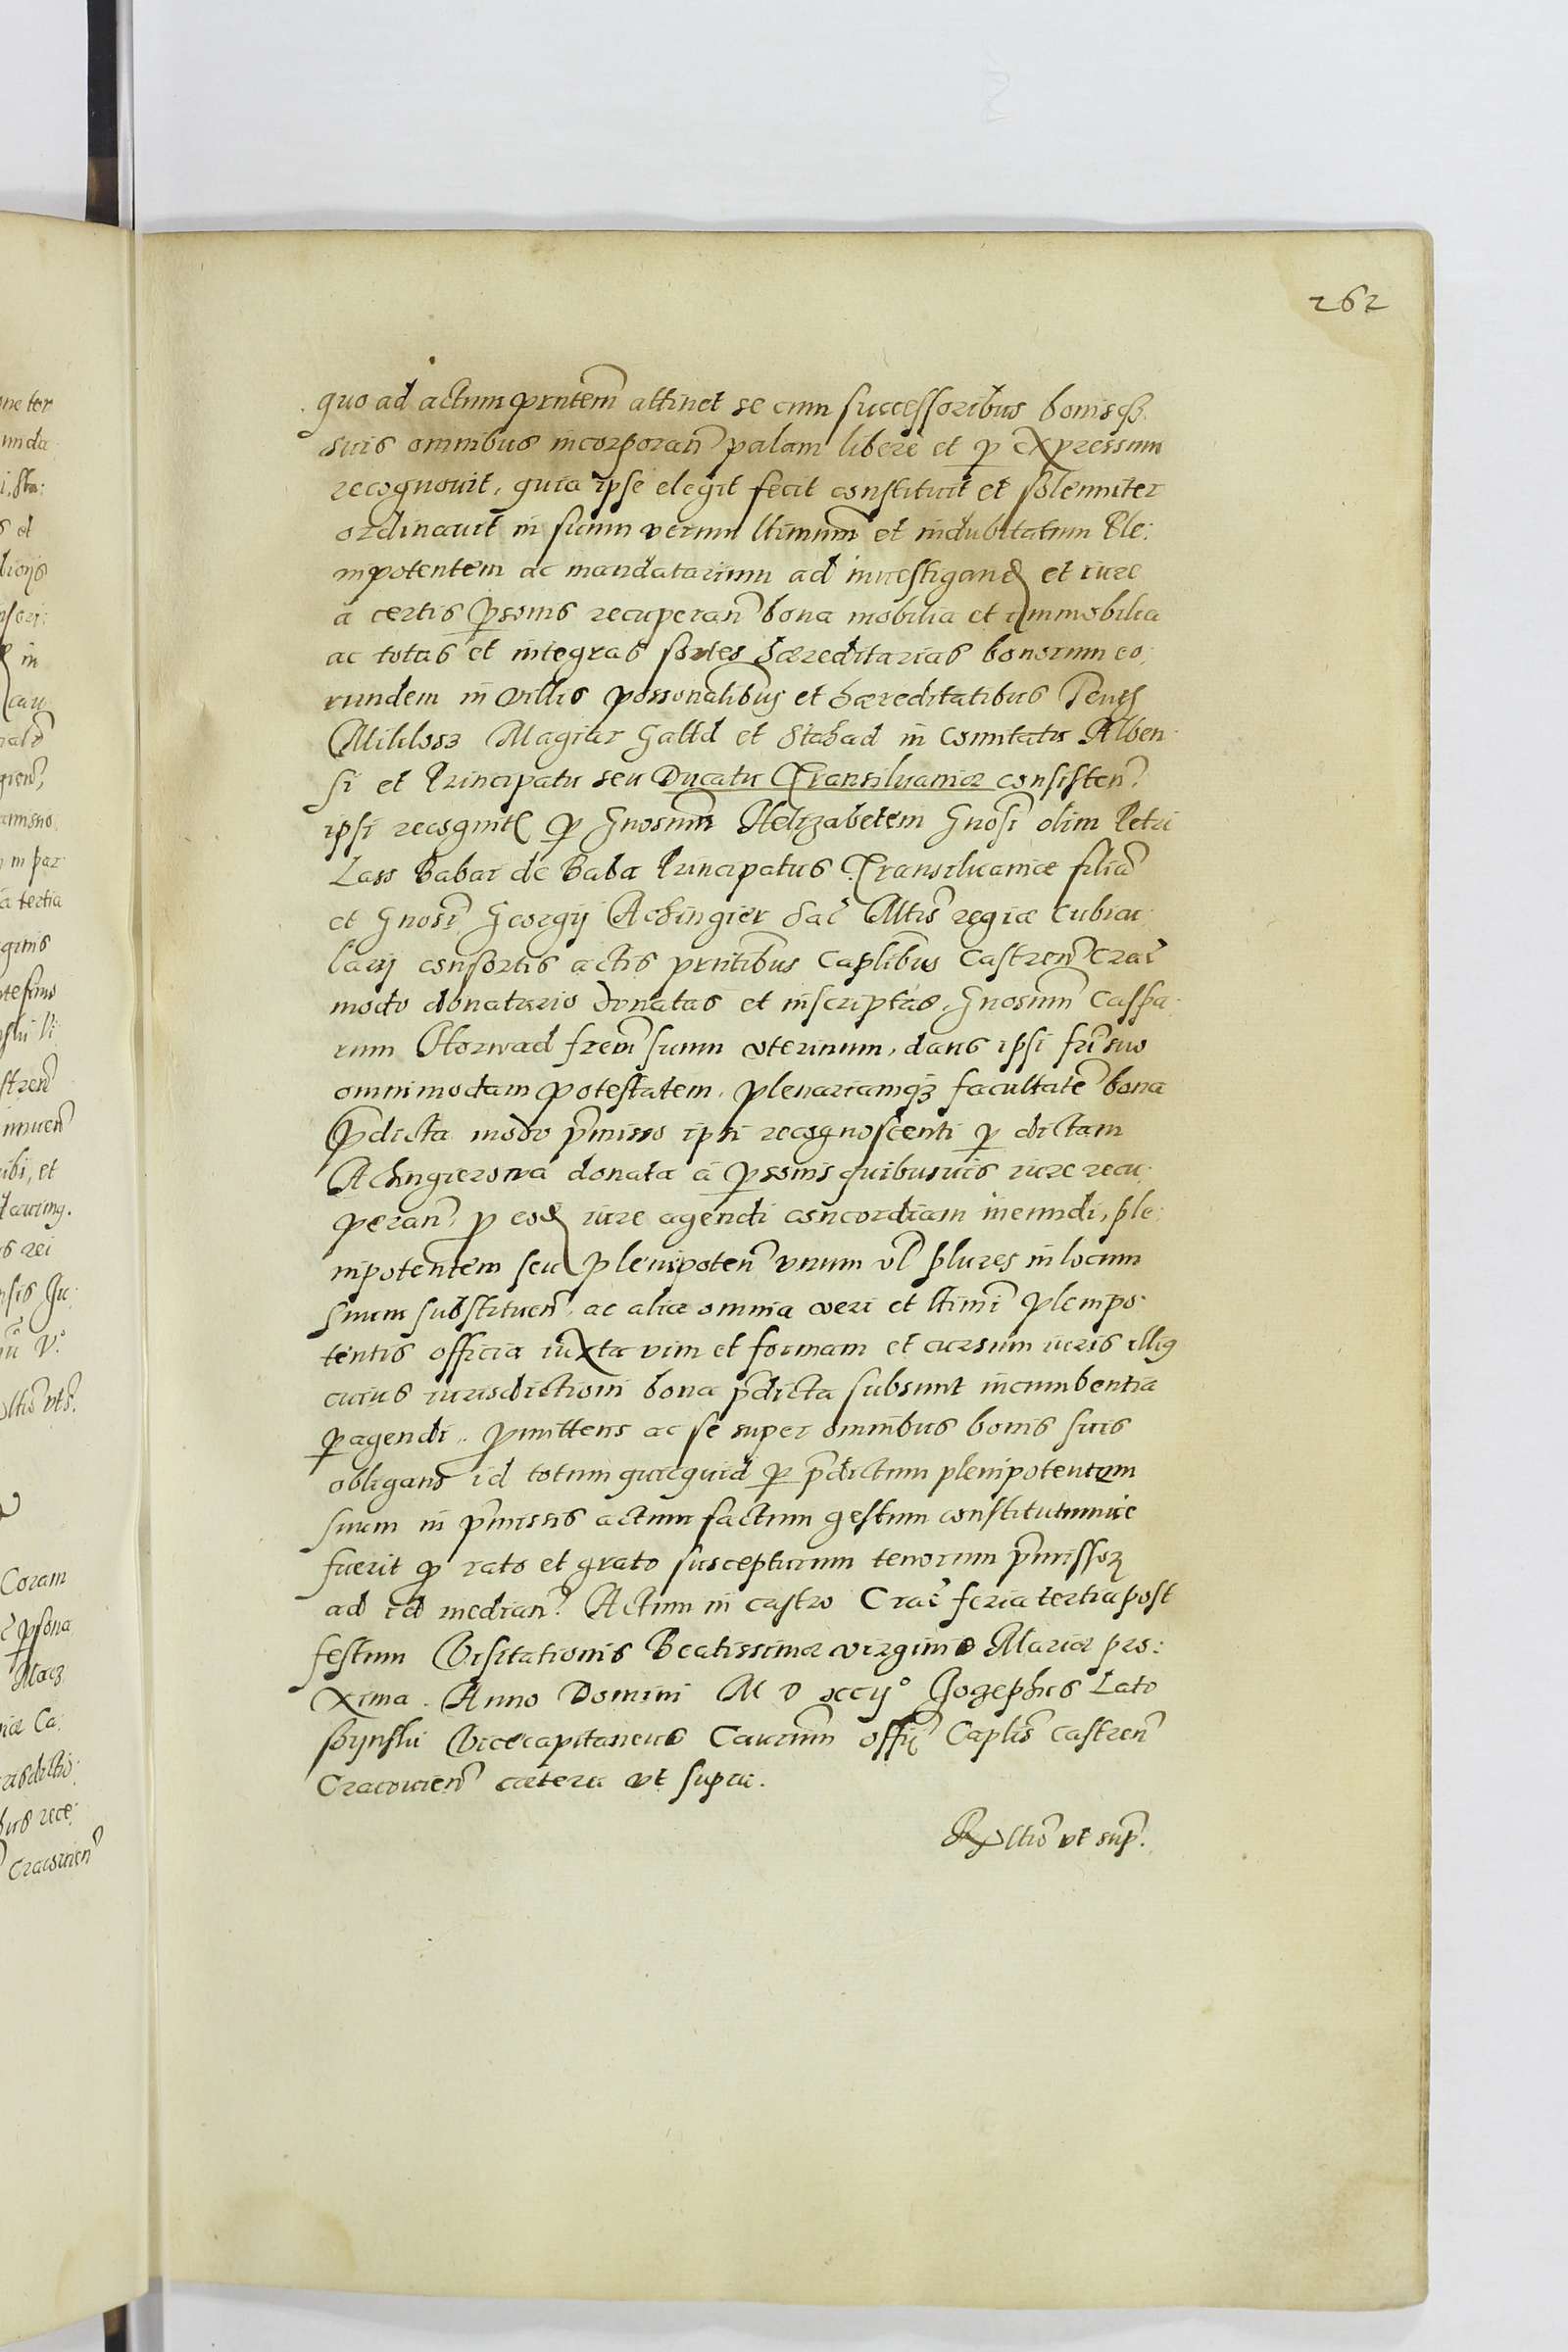 262
quo ad actum prntem attinet se cum successoribus bonisq3
suis omnibus incorporan palam libere et p expressum
recognouit, quia ipse elegit fecit constituit et solenniter
ordinauit in suum verum ltimum et indubitatum Ple:
nipotentem ac mandatarium ad inuestigand et iure
a certis psonis recuperan bona mobilia et immobilia
ac totas et integras sortes haereditarias bonorum eo:
rundem in villis possonalibus et haereditatibus
Miklosz Magiar Galld et Stahad in Comitatu Alben:
si et Principatu seu Ducatu Transiluaniae consisten
ipsi recognit p Gnosum Helizabetem Gnosi olim Petri
Lass Babai de Baba Principatus Transiluaniae filia
et Gnosi Georgij Achingier Sac Mtis regiae Cubicu:
larij consortis actis prntibus Caplibus Castren Crac
modo donatorio donatas et inscriptas, Gnosum Caspa:
rum Horwad frem suum vterinum, dans ipsi fri suo
omnimodam potestatem, plenariamq3 facultate bona
pdicta modo pmisso ipsi recognoscenti p dictam
Achngierowa donata a psonis quibusuis iure recu:
peran, p eod iure agendi concordiam ineundi, ple:
nipotentem seu plenipoten vnum vl plures in locum
suum substituen, ac alia omnia veri et ltimi plenipo:
tentis officia iuxta vim et formam et cursum iuris illig
cuius iurisdictioni bona pdicta subsunt incumbentia
pagendi. pmittens ac se super omnibus bonis suis
obligans id totum quicquid p pdictum plenipotentem
suum in pmissis actum factum gestum constitutumue
fuerit p rato et grato suscepturum tenorum pmissor
ad id median. Actum in castro Crac feria tertia post
festum Visitationis Beatissimae virginis Mariae pro:
xima. Anno Domini M D xcij° Jozephus Lato
soijnski Vicecapitaneus Caurum offij Caplis Castren
Cracouien caetera vt supra.
Rltio vt sup.